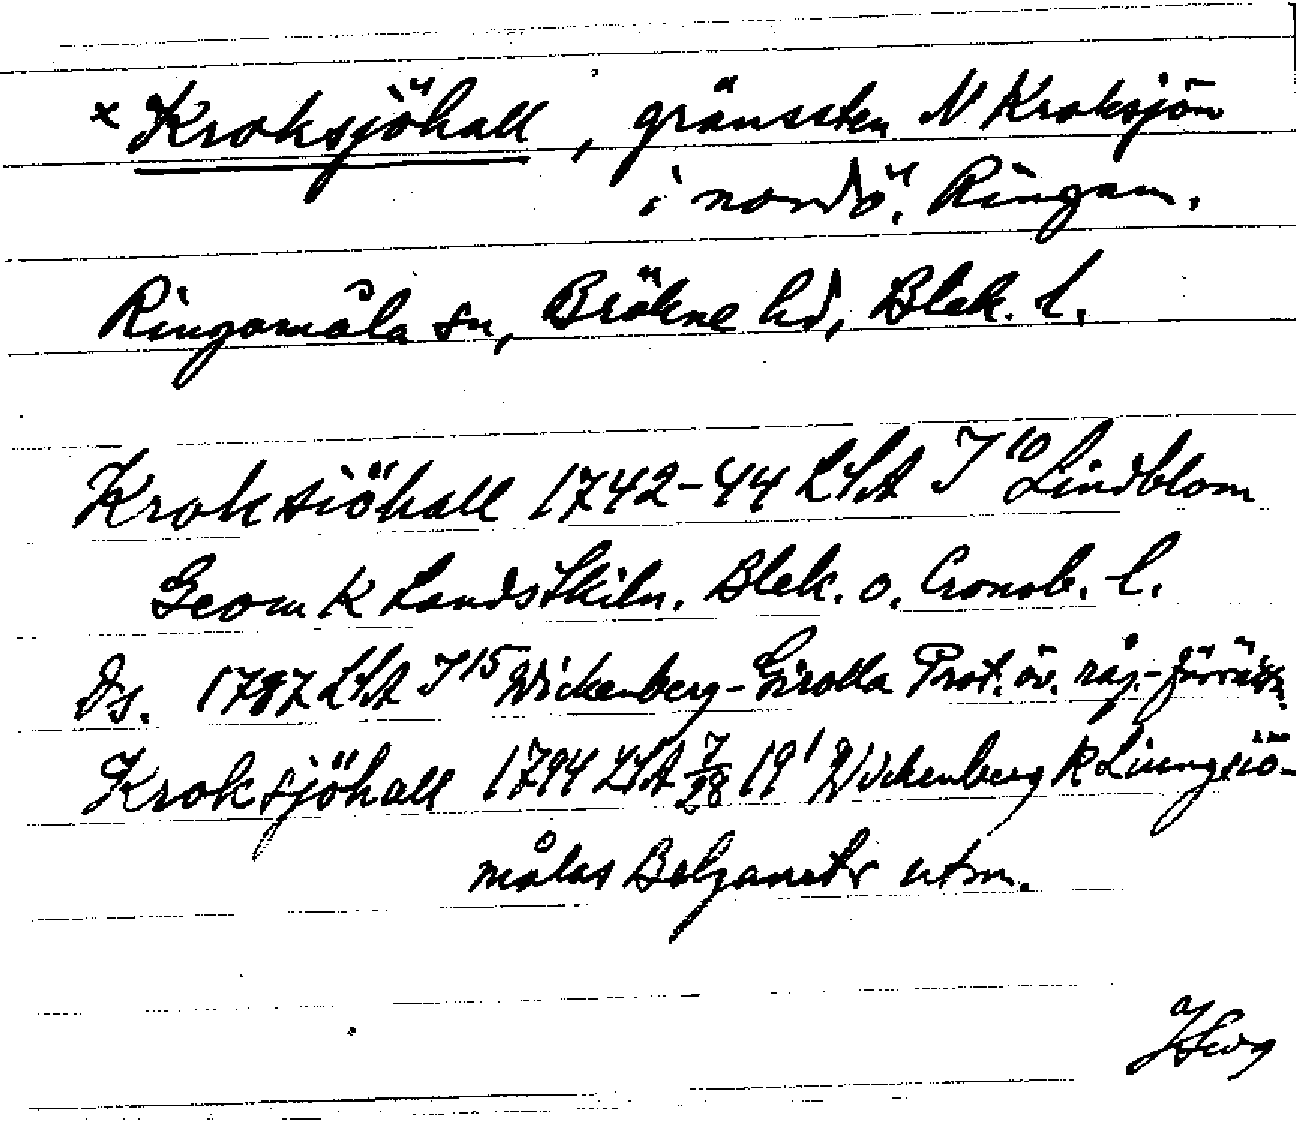 x Kroksjöhall, gränssten N Kroksjön
i nordö. Ringam.
Ringamåla sn, Bräkne hd, Blek. l.
Kroksiöhall 1742-44 LSA J¹⁰ Lindblom
Geom K LandsSkiln. Blek. o. Cronob. l.
Ds. 1787 LSA J¹⁵ Wickenberg- Prot. öv. råg.-förrättn.
Kroksjöhall 1794 LSA 7/28 19¹ Wickenberg K Liungsiö-
målas utm.